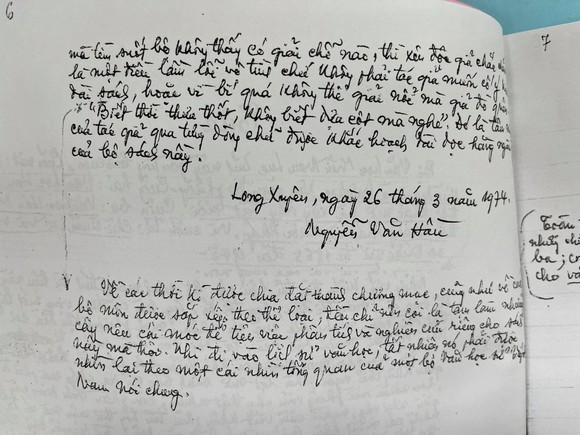 6
mà tìm suốt bộ không thấy có giải chỗ nào, thì xin độc giả chắc
là một điều lầm lỗi vô tình chứ không phải tác giả muốn
dài sách, hoặc vì bí quá không thể giải nổi mà giả đò
"Biết thì thưa thốt, không biết dựa cột mà nghe". Đó là tâm
của tác giả qua từng dòng chữ được khắc hoạch dài dọc hằng
của bộ sách này.
Long Xuyên, ngày 26 tháng 3 năm 1974.
Nguyễn Văn Hầu
V Về các thời kì được chia đặt thành chương mục, cũng như về các
bộ môn được sắp xếp theo thể loại, tên chỉ nên coi là tạm làm những
cây nêu chỉ mốc để tiện việc phân tích và nghiên cứu riêng cho sách
này mà thôi. Khi đi vào lịch sử văn học, tất nhiên nó phải được
nhìn lại theo một cái nhìn tổng quan của một bộ Văn học sử Việt
Nam nói chung.
7
nhữ
ba;
cho